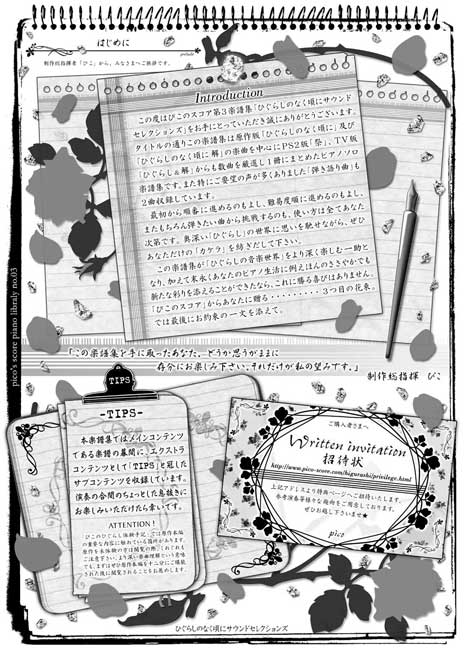 はじめに
prelude
制作総指揮者「ぴこ」から、みなさまへご挨拶です。
Introduction
この度はぴこのスコア第3楽譜集「ひぐらしのなく頃にサウンド
セレクションズ」をお手にとっていただき誠にありがとうございます。
タイトルの通りこの楽譜集は原作版「ひぐらしのなく頃に」及び
「ひぐらしのなく頃に 解」の楽曲を中心にPS2版「祭」、TV版
「ひぐらし&解」からも数曲を厳選し1冊にまとめたピアノソロ
楽譜集です。また特にご要望の声が多くありました「弾き語り曲」も
2曲収録しています。
最初から順番に進めるのもよし、難易度順に進めるのもよし、
またもちろん弾きたい曲から挑戦するのも、使い方は全てあなた
次第です。奥深い「ひぐらし」の世界に思いを馳せながら、ぜひ
あなただけの「カケラ」を紡ぎだして下さい。
この楽譜集が「ひぐらしの音楽世界」をより深く楽しむ一助と
なり、加えて末永くあなたのピアノ生活に例えほんのささやかでも
新たな彩りを添えることができたなら、これに勝る喜びはありません。
「ぴこのスコア」からあなたに贈る・・・・・・・・・3つ目の花束。
では最後にお約束の一文を添えて。
「この楽譜集を手に取ったあなた、どうか思うがままに
存分にお楽しみ下さい。それだけが私の望みです。」
制作総指揮 ぴこ
pico's score piano library no.03
TIPS
-TIPS-
本楽譜集ではメインコンテンツ
である楽譜の幕間に、エクストラ
コンテンツとして「TIPS」と冠した
サブコンテンツを収録しています。
演奏の合間のちょっとした息抜きに
お楽しみいただけたら幸いです。
ATTENTION!
「ぴこのひぐらし体験手記」では原作本編
の重要な内容に触れている箇所があります。
ご購入者さまへ
Written invitation
招待状
http://www.pico-score.com/higurashi/privilege.html
上記アドレスより特典ページへご招待いたします。
参考演奏等様々な趣向をご用意しております。
ぜひお越し下さいませ
pico
ひぐらしのなく頃にサウンドセレクションズ